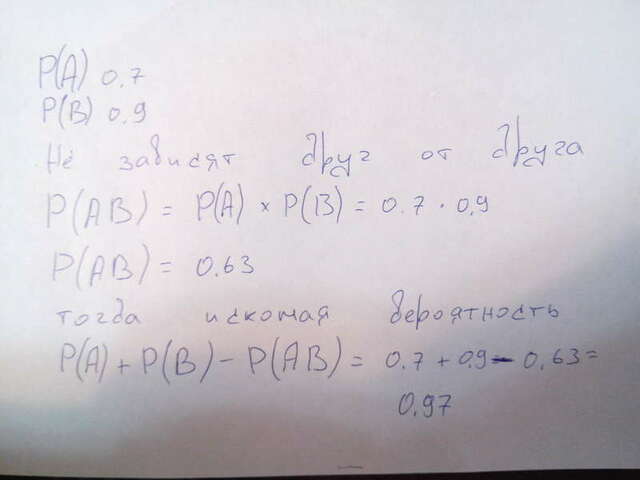 P(A) 0.7
P(B) 0.9
Не зависят друг от друга
P(AB) = P(A) × P(B) = 0.7 · 0.9
P(AB) = 0.63
тогда искомая вероятность
P(A) + P(B) - P(AB) = 0.7 + 0.9 - 0.63 =
0.97